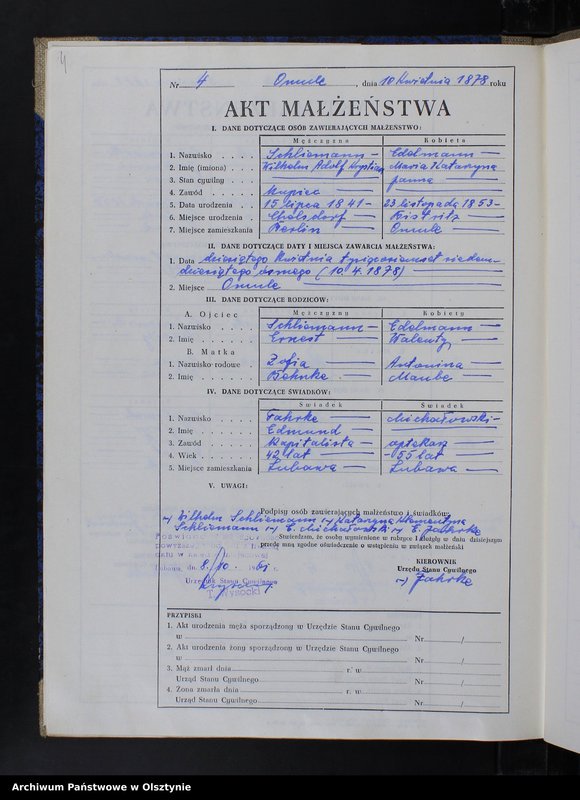 4
Nr 4 Omule, dnia 10 kwietnia 1878 roku
AKT MAŁŻEŃSTWA
I. DANE DOTYCZĄCE OSÓB ZAWIERAJĄCYCH MAŁŻEŃSTWO:
Mężczyzna Kobieta
1. Nazwisko . . . . Schliemann — Edelmann —
2. Imię (imiona) . . . Wilhelm Adolf Krystian Maria Katarzyna
3. Stan cywilny . . . — panna —
4. Zawód . . . . . Kupiec — —
5. Data urodzenia . . 15 lipca 1841 — 23 listopada 1853 —
6. Miejsce urodzenia . —
7. Miejsce zamieszkania Berlin — Omule —
II. DANE DOTYCZĄCE DATY I MIEJSCA ZAWARCIA MAŁŻEŃSTWA:
1. Data dziesiątego kwietnia tysiąc osiemset siedem-
dziesiątego ósmego (10.4.1878) —
2. Miejsce Omule —
III. DANE DOTYCZĄCE RODZICÓW:
A. Ojciec Mężczyzny Kobiety
1. Nazwisko . . . . Schliemann — Edelmann —
2. Imię . . . . . . Ernest — Walenty —
B. Matka
1. Nazwisko rodowe . Zofia — Antonina —
2. Imię . . . . . . Behnke — —
IV. DANE DOTYCZĄCE ŚWIADKÓW:
Świadek Świadek
1. Nazwisko . . . . Fahrke — Michałowski —
2. Imię . . . . . . Edmund — —
3. Zawód . . . . . Kapitalista — aptekarz —
4. Wiek . . . . . . 42 lat — — 55 lat —
5. Miejsce zamieszkania Lubawa — Lubawa —
V. UWAGI:
Podpisy osób zawierających małżeństwo i świadków
-) Wilhelm Schliemann -) Katarzyna Klementyna
Schliemann -) E. Michałowski -) E. Fahrke
Stwierdzam, że osoby wymienione w rubryce I złożyły w dniu dzisiejszym
przede mną zgodne oświadczenie o wstąpieniu w związek małżeński
Lubawa, dn. 8/10 1961 r.
KIEROWNIK
Urzędu Stanu Cywilnego
Urzędnik Stanu Cywilnego
-) Fahrke
T. Wysocki
PRZYPISKI
1. Akt urodzenia męża sporządzony w Urzędzie Stanu Cywilnego
w Nr /
2. Akt urodzenia żony sporządzony w Urzędzie Stanu Cywilnego
w Nr /
3. Mąż zmarł dnia r. w
Urząd Stanu Cywilnego Nr /
4. Żona zmarła dnia r. w
Urząd Stanu Cywilnego Nr /
Archiwum Państwowe w Olsztynie